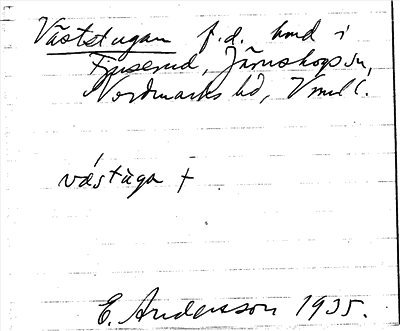 Väststugan f.d. hmd i
Fjuserud, Järnskogs sn,
Nordmarks hd, Vrml l.
vástuga †
E. Andersson 1935.